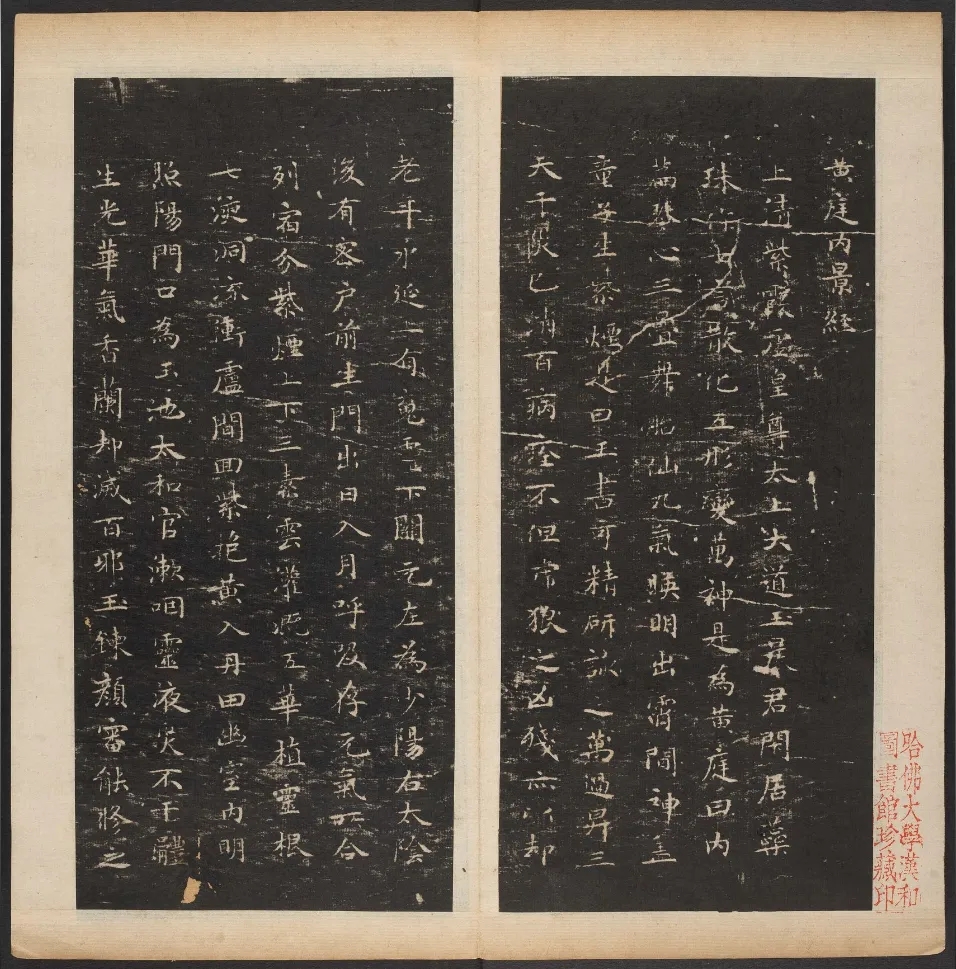 黄庭内景經
上清紫霞虛皇尊太上大道玉晨君閑居蘂
珠作七言散化五形變萬神是為黄庭曰内
篇琴心三疊舞胎仙九氣暎明出霄間神盖
童子生紫煙是曰玉書可精研詠之萬過昇三
天千灾已消百病痊不但虎狼之凶殘亦以却
老年永延上有魂靈下關元左為少陽右太陰
後有密户前生門出日入月呼吸存元氣所合
列宿分紫煙上下三素雲灌溉五華植靈根
七液洞流衝廬間回紫抱黄入丹田幽室内明
照陽門口為玉池太和官漱咽靈液災不干體
生光華氣香蘭却滅百邪玉錬顏審能修之
哈佛大學漢和
圖書館珍藏印